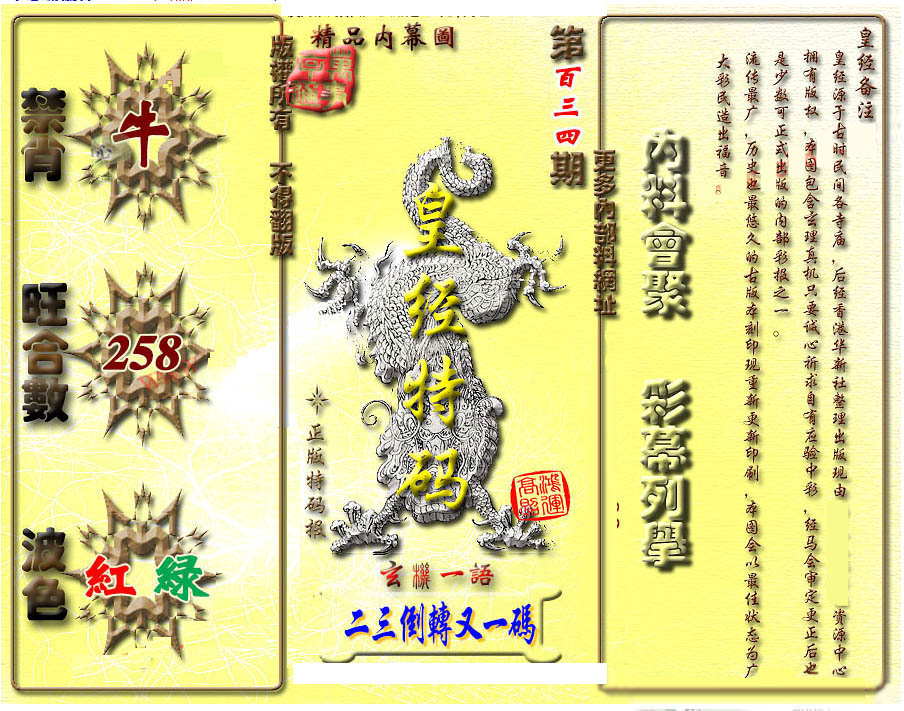 禁肖
牛
旺合數
258
波色
紅 綠
版權所有 不得翻版
精品內幕圖
第百三四期
更多內部料網址
皇经特码
正版特码报
鴻運高照
玄機一語
二三倒轉又一碼
內料會聚
彩幕列學
皇经备注
皇经源于古时民间各寺庙，后经香港华新社整理出版现由 资源中心
拥有版权，本图包含玄理真机只要诚心祈求自有应验中彩，经马会审定更正后也
是少数可正式出版的内部彩报之一。
流传最广，历史也最悠久的古版本刻印现重新更新印刷，本图会以最佳状态为广
大彩民造出福音